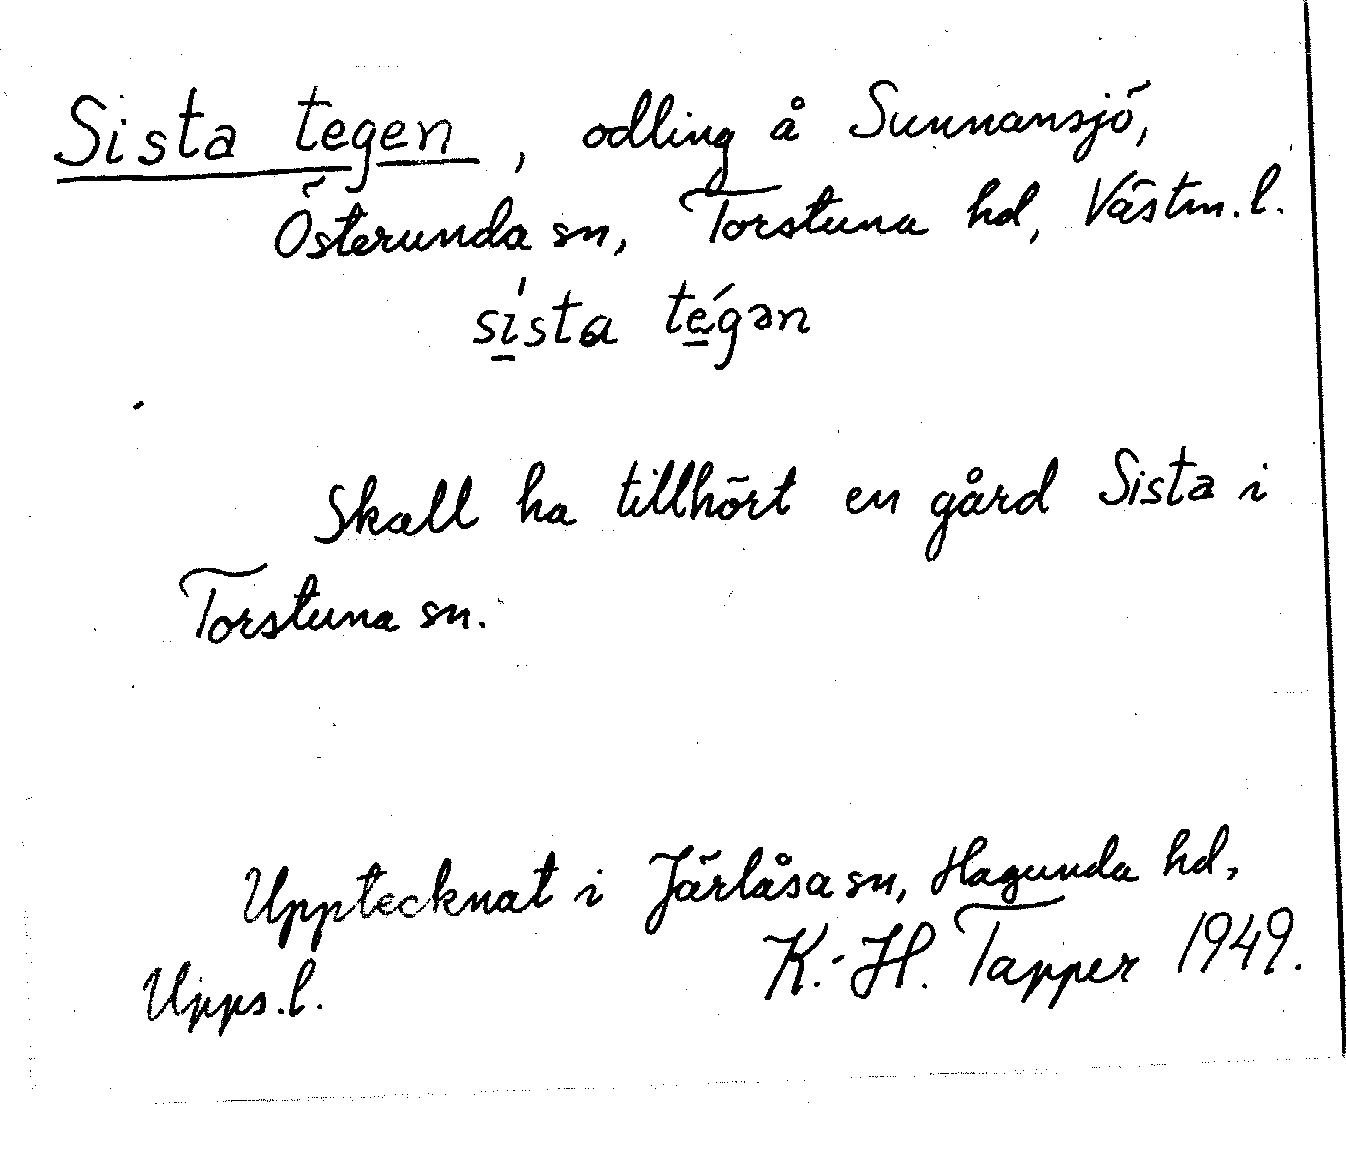 Sista tegen, odling å Sunnansjö,
Österunda sn, Torstuna hd, Västm.l.
sı̱́sta té̱gən
Skall ha tillhört en gård Sista i
Torstuna sn.
Upptecknat i Järlåsa sn, Hagunda hd,
Upps.l. K.-H. Tapper 1949.